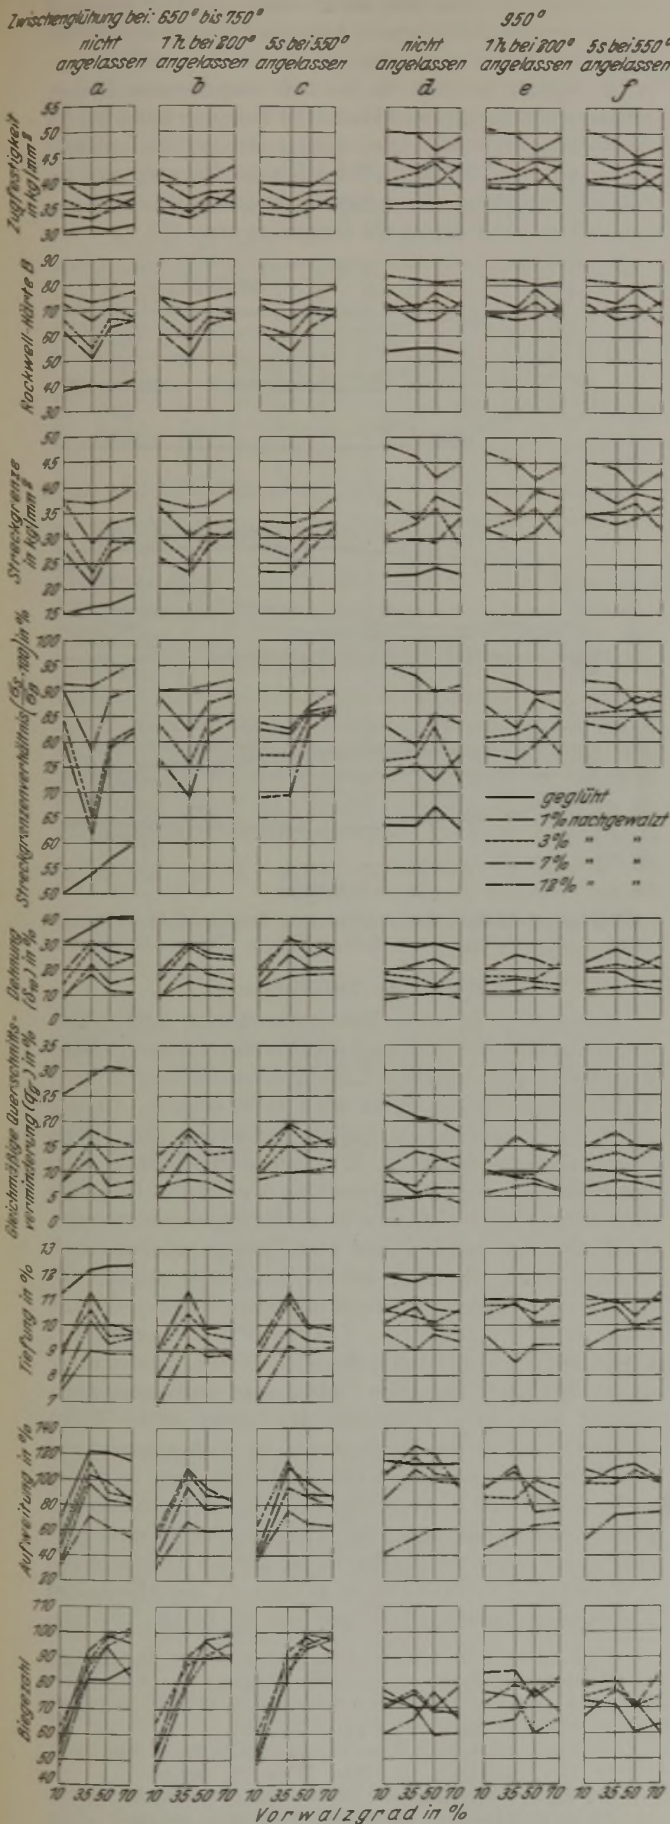 Zwischenglühung bei: 650° bis 750° 950°
nicht angelassen 1 h bei 200° angelassen 5s bei 550° angelassen nicht angelassen 1 h bei 200° angelassen 5s bei 550° angelassen
a b c d e f
Zugfestigkeit in kg/mm²
55
50
45
40
35
30
Rockwell-Härte B
90
80
70
60
50
40
30
Streckgrenze in kg/mm²
50
45
40
35
30
25
20
15
Streckgrenzenverhältnis (σs/σB · 100) in %
100
95
90
85
80
75
70
65
60
55
50
geglüht
1% nachgewalzt
3% " "
7% " "
12% " "
Dehnung in %
40
30
20
10
0
Gleichmäßige Querschnitts-verminderung (qg) in %
35
30
25
20
15
10
5
0
Tiefung in %
13
12
11
10
9
8
7
Aufweitung in %
140
120
100
80
60
40
20
Biegezahl
110
100
90
80
70
60
50
40
10 35 50 70 10 35 50 70 10 35 50 70 10 35 50 70 10 35 50 70 10 35 50 70
Vorwalzgrad in %